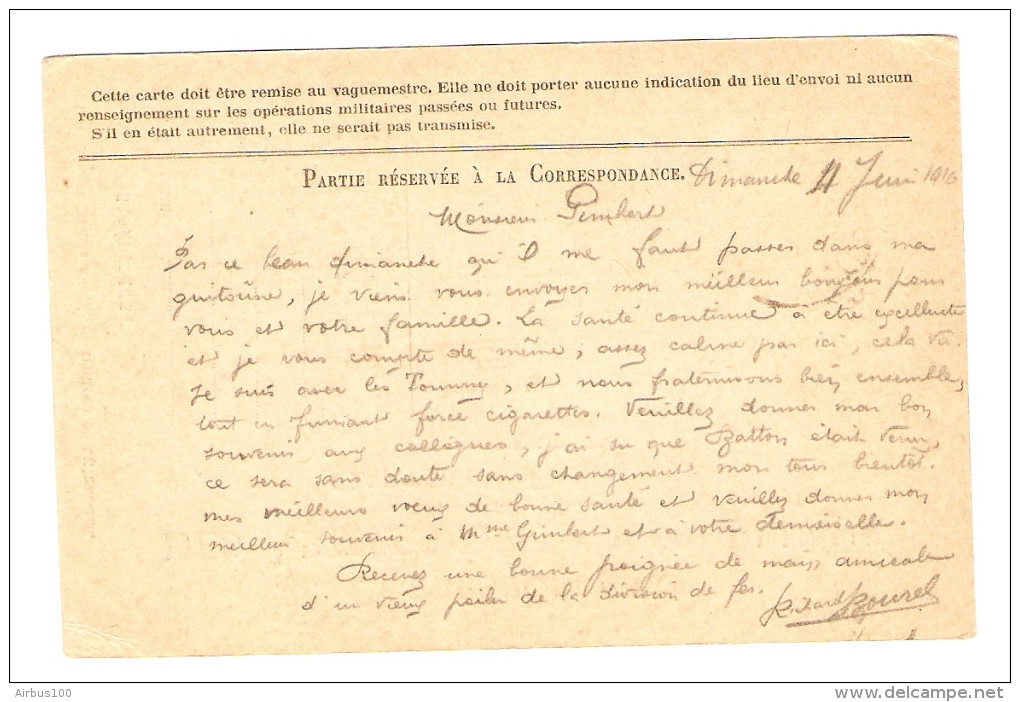 Cette carte doit être remise au vaguemestre. Elle ne doit porter aucune indication du lieu d'envoi ni aucun
renseignement sur les opérations militaires passées ou futures.
S'il en était autrement, elle ne serait pas transmise.
PARTIE RÉSERVÉE À LA CORRESPONDANCE. Dimanche 4 Juin 1916
Monsieur Gimbert
Par ce beau dimanche qu'il me faut passer dans ma
guitoüne, je viens vous envoyer mon meilleur bonjour pour
vous et votre famille. La santé continue à être excellente
et je vous compte de même; assez calme par ici, cela va.
Je suis avec les Tommy, et nous fraternisons bien ensemble,
tout en fumant force cigarettes. Veuillez donner mon bon
souvenir aux collègues, j'ai su que était venu,
ce sera sans doute sans changement mon tour bientôt.
mes meilleurs voeux de bonne santé et veuillez donner mon
meilleur souvenir à Mme Gimbert et à votre demoiselle.
Recevez une bonne poignée de main amicale
d'un vieux poilu de la division de fer.
Airbus100
www.delcampe.net